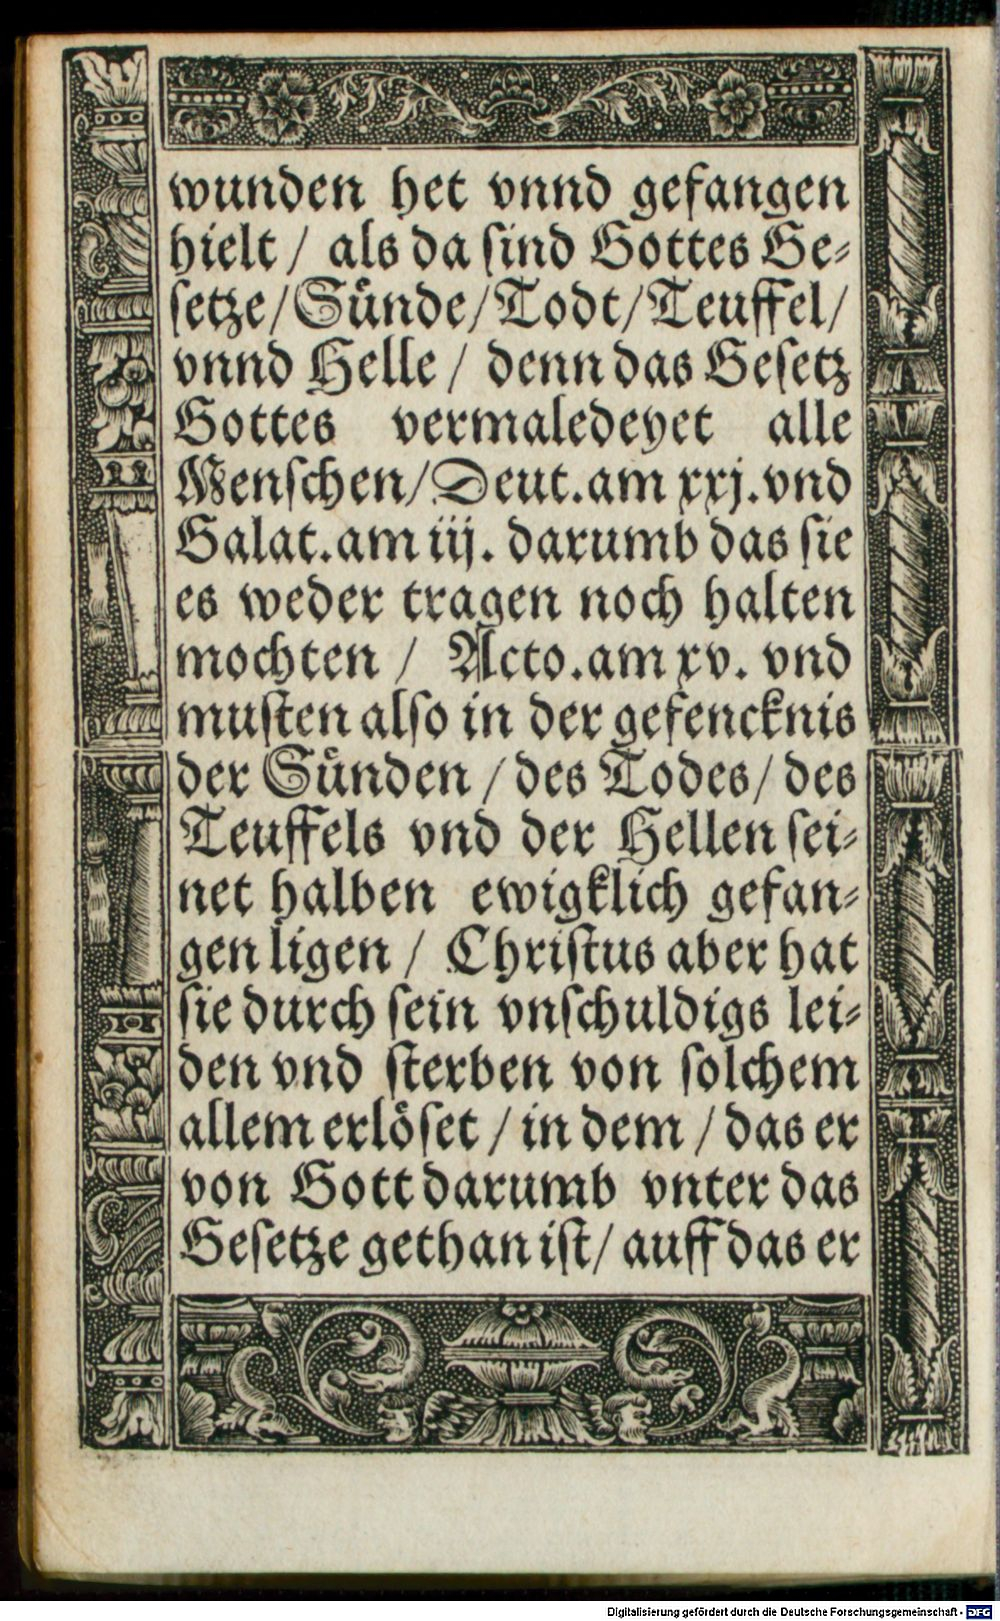 wunden het vnnd gefangen
hielt / als da sind Gottes Ge⸗
setze/Sünde/Todt/Teuffel/
vnnd Helle / denn das Gesetz
Gottes vermaledeyet alle
Menschen/Deut.am xxj.vnd
Galat.am iij. darumb das sie
es weder tragen noch halten
mochten / Acto.am xv. vnd
musten also in der gefencknis
der Sünden / des Todes/ des
Teuffels vnd der Hellen sei⸗
net halben ewigklich gefan⸗
gen ligen / Christus aber hat
sie durch sein vnschuldigs lei⸗
den vnd sterben von solchem
allem erlöset / in dem / das er
von Gott darumb vnter das
Gesetze gethan ist/ auff das er
Digitalisierung gefördert durch die Deutsche Forschungsgemeinschaft - DFG